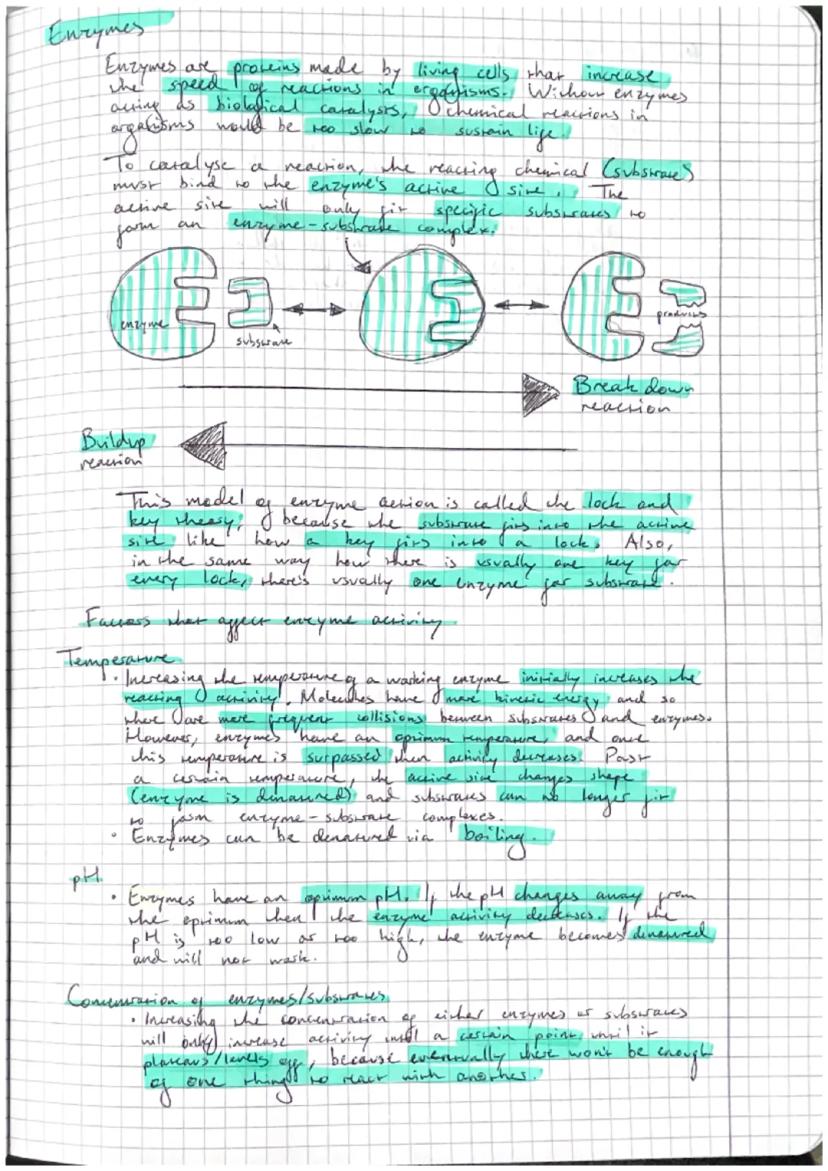 Enzymes
Enzymes are proteins made by living cells that increase
the speed of reactions in organisms. Without enzymes
acting as biological catalysts, chemical reactions in
organisms would be too slow to sustain life
To catalyse a reaction, the reacting chemical (substrate)
must bind to the enzyme's active site. The
active site will only fit specific substrates to
form an enzyme-substrate complex.
enzyme
substrate
products
Break down
reaction
Buildup
reaction
This model of enzyme action is called the lock and
key theory, because the substrate fits into the active
site like how a key fits into a lock. Also,
in the same way how there is usually one key for
every lock, there's usually one enzyme for substrate.
Factors that affect enzyme activity
Temperature
• Increasing the temperature of a working enzyme initially increases the
reacting activity. Molecules have more kinetic energy and so
there are more frequent collisions between substrates and enzymes.
However, enzymes have an optimum temperature, and once
this temperature is surpassed then activity decreases. Past
a certain temperature, the active site changes shape
(enzyme is denatured) and substrates can no longer fit
to form enzyme-substrate complexes.
• Enzymes can be denatured via boiling.
pH
• Enzymes have an optimum pH. If the pH changes away from
the optimum then the enzyme activity decreases. If the
pH is too low or too high, the enzyme becomes denatured
and will not work.
Concentration of enzymes/substrates
• Increasing the concentration of either enzymes or substrates
will only increase activity until a certain point until it
plateaus/levels off, because eventually there won't be enough
of one thing to react with another.